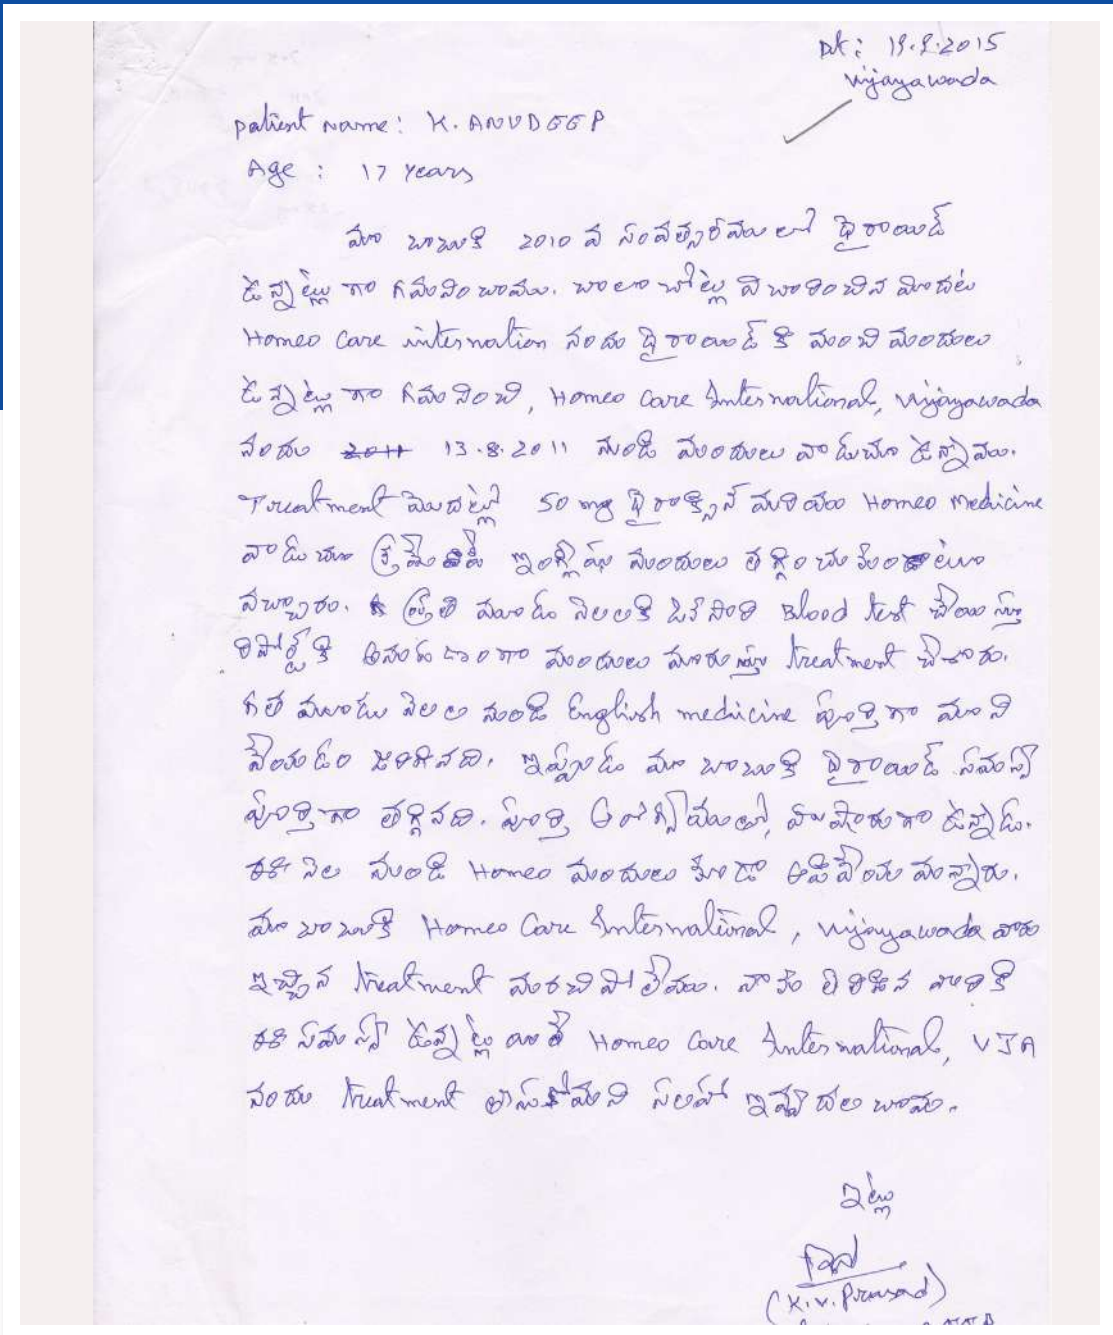 Dt: 19.9.2015
Vijayawada
Patient Name: K. ANUDEEP
Age : 17 Years
మా బాబుకి 2010 వ సంవత్సరములో థైరాయిడ్
ఉన్నట్లు గా గమనించాము. చాలా చోట్ల విచారించిన మీదట
Homeo Care internation నందు థైరాయిడ్ కి మంచి మందులు
ఉన్నట్లు గా గమనించి, Homeo Care International, Vijayawada
నందు 2011 13.8.2011 నుండి మందులు వాడుచూ ఉన్నాము.
Treatment మొదట్లో 50 mg థైరాక్సిన్ మరియు Homeo Medicine
వాడుచూ క్రమేపీ ఇంగ్లీషు మందులు తగ్గించుకుంటూ
వచ్చారు. ప్రతి మూడు నెలలకి ఒకసారి Blood test చేయిస్తూ
రిపోర్ట్ కి అనుగుణంగా మందులు మారుస్తూ treatment చేశారు.
గత మూడు నెలల నుండి English medicine పూర్తిగా మాని
వేయడం జరిగినది. ఇప్పుడు మా బాబుకి థైరాయిడ్ సమస్య
పూర్తిగా తగ్గినది. పూర్తి ఆరోగ్యములో, హుషారుగా ఉన్నాడు.
ఈ నెల నుండి Homeo మందులు కూడా ఆపివేయమన్నారు.
మా బాబుకి Homeo Care International, Vijayawada వారు
ఇచ్చిన treatment మరచిపోలేము. నాకు తెలిసిన వారికి
ఈ సమస్య ఉన్నట్లు అయితే Homeo Care International, VJA
నందు treatment తీసుకోమని సలహా ఇవ్వదలచాను.
ఇట్లు
(K.V. Prasad)